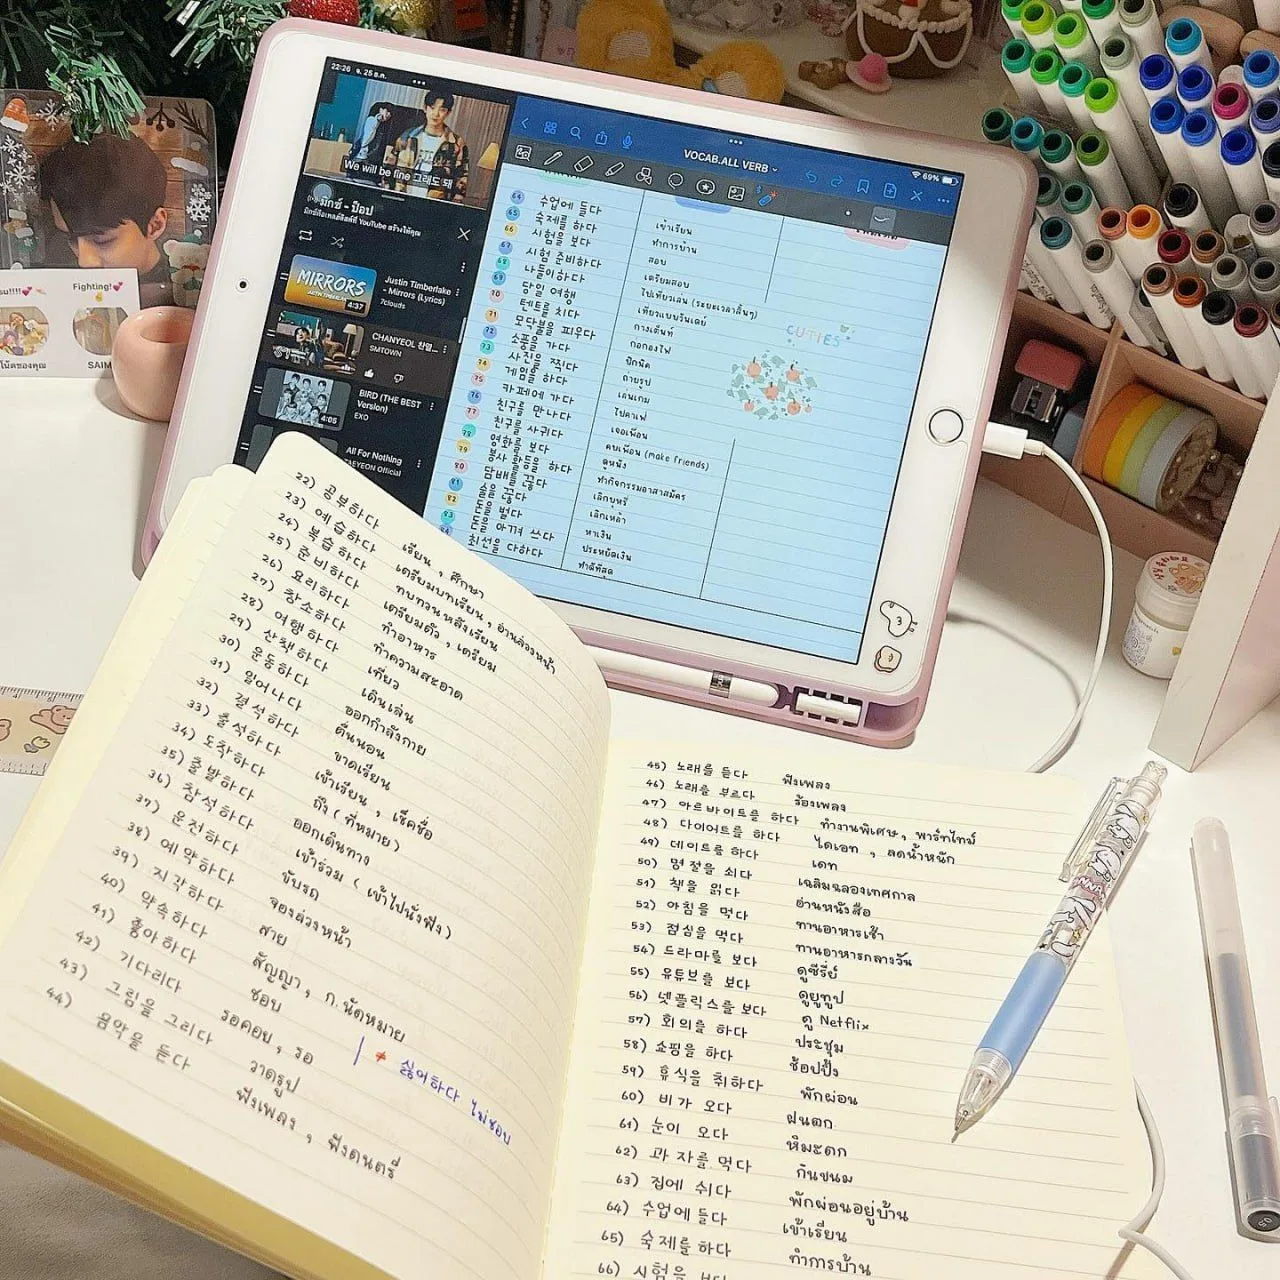 22:26 จ. 25 ธ.ค.
We will be fine 그래도 돼
มิกซ์ - ป๊อป
มิกซ์ที่เพลย์ลิสต์ที่ YouTube สร้างให้คุณ
MIRRORS
4:37
Justin Timberlake
- Mirrors (Lyrics)
7clouds
CHANYEOL 찬열...
SMTOWN
BIRD (THE BEST
Version)
EXO
4:05
All For Nothing
TAEYEON Official
VOCAB.ALL VERB
69%
64 수업에 듣다 เข้าเรียน
65 숙제를 하다 ทำการบ้าน
66 시험을 보다 สอบ
67 시험 준비하다 เตรียมสอบ
68 나들이하다 ไปเที่ยวเล่น (ระยะเวลาสั้นๆ)
69 당일 여행 เที่ยวแบบวันเดย์
70 텐트를 치다 กางเต็นท์
71 모닥불을 피우다 กอกองไฟ
72 소풍을 가다 ปิกนิก
73 사진을 찍다 ถ่ายรูป
74 게임을 하다 เล่นเกม
75 카페에 가다 ไปคาเฟ่
76 친구를 만나다 เจอเพื่อน
77 친구를 사귀다 คบเพื่อน (make friends)
78 영화를 보다 ดูหนัง
79 봉사 활동을 하다 ทำกิจกรรมอาสาสมัคร
80 담배를 끊다 เลิกบุหรี่
81 술을 끊다 เลิกเหล้า
82 돈을 벌다 หาเงิน
83 돈을 아껴 쓰다 ประหยัดเงิน
84 최선을 다하다 ทำดีที่สุด
CUTIES
Fighting!
SAIM
22) 공부하다 เรียน , ศึกษา
23) 예습하다 เตรียมบทเรียน , อ่านล่วงหน้า
24) 복습하다 ทบทวนหลังเรียน
25) 준비하다 เตรียมตัว , เตรียม
26) 요리하다 ทำอาหาร
27) 청소하다 ทำความสะอาด
28) 여행하다 เที่ยว
29) 산책하다 เดินเล่น
30) 운동하다 ออกกำลังกาย
31) 일어나다 ตื่นนอน
32) 결석하다 ขาดเรียน
33) 출석하다 เข้าเรียน , เช็คชื่อ
34) 도착하다 ถึง ( ที่หมาย )
35) 출발하다 ออกเดินทาง
36) 참석하다 เข้าร่วม ( เข้าไปนั่งฟัง )
37) 운전하다 ขับรถ
38) 예약하다 จองล่วงหน้า
39) 지각하다 สาย
40) 약속하다 สัญญา , ก. นัดหมาย
41) 좋아하다 ชอบ | * 싫어하다 ไม่ชอบ
42) 기다리다 รอคอย , รอ
43) 그림을 그리다 วาดรูป
44) 음악을 듣다 ฟังเพลง , ฟังดนตรี
45) 노래를 듣다 ฟังเพลง
46) 노래를 부르다 ร้องเพลง
47) 아르바이트를 하다 ทำงานพิเศษ , พาร์ทไทม์
48) 다이어트를 하다 ไดเอท , ลดน้ำหนัก
49) 데이트를 하다 เดท
50) 명절을 쇠다 เฉลิมฉลองเทศกาล
51) 책을 읽다 อ่านหนังสือ
52) 아침을 먹다 ทานอาหารเช้า
53) 점심을 먹다 ทานอาหารกลางวัน
54) 드라마를 보다 ดูซีรี่ย์
55) 유튜브를 보다 ดูยูทูป
56) 넷플릭스를 보다 ดู Netflix
57) 회의를 하다 ประชุม
58) 쇼핑을 하다 ช้อปปิ้ง
59) 휴식을 취하다 พักผ่อน
60) 비가 오다 ฝนตก
61) 눈이 오다 หิมะตก
62) 과자를 먹다 กินขนม
63) 집에 쉬다 พักผ่อนอยู่บ้าน
64) 수업에 듣다 เข้าเรียน
65) 숙제를 하다 ทำการบ้าน
66) 시험을 보다